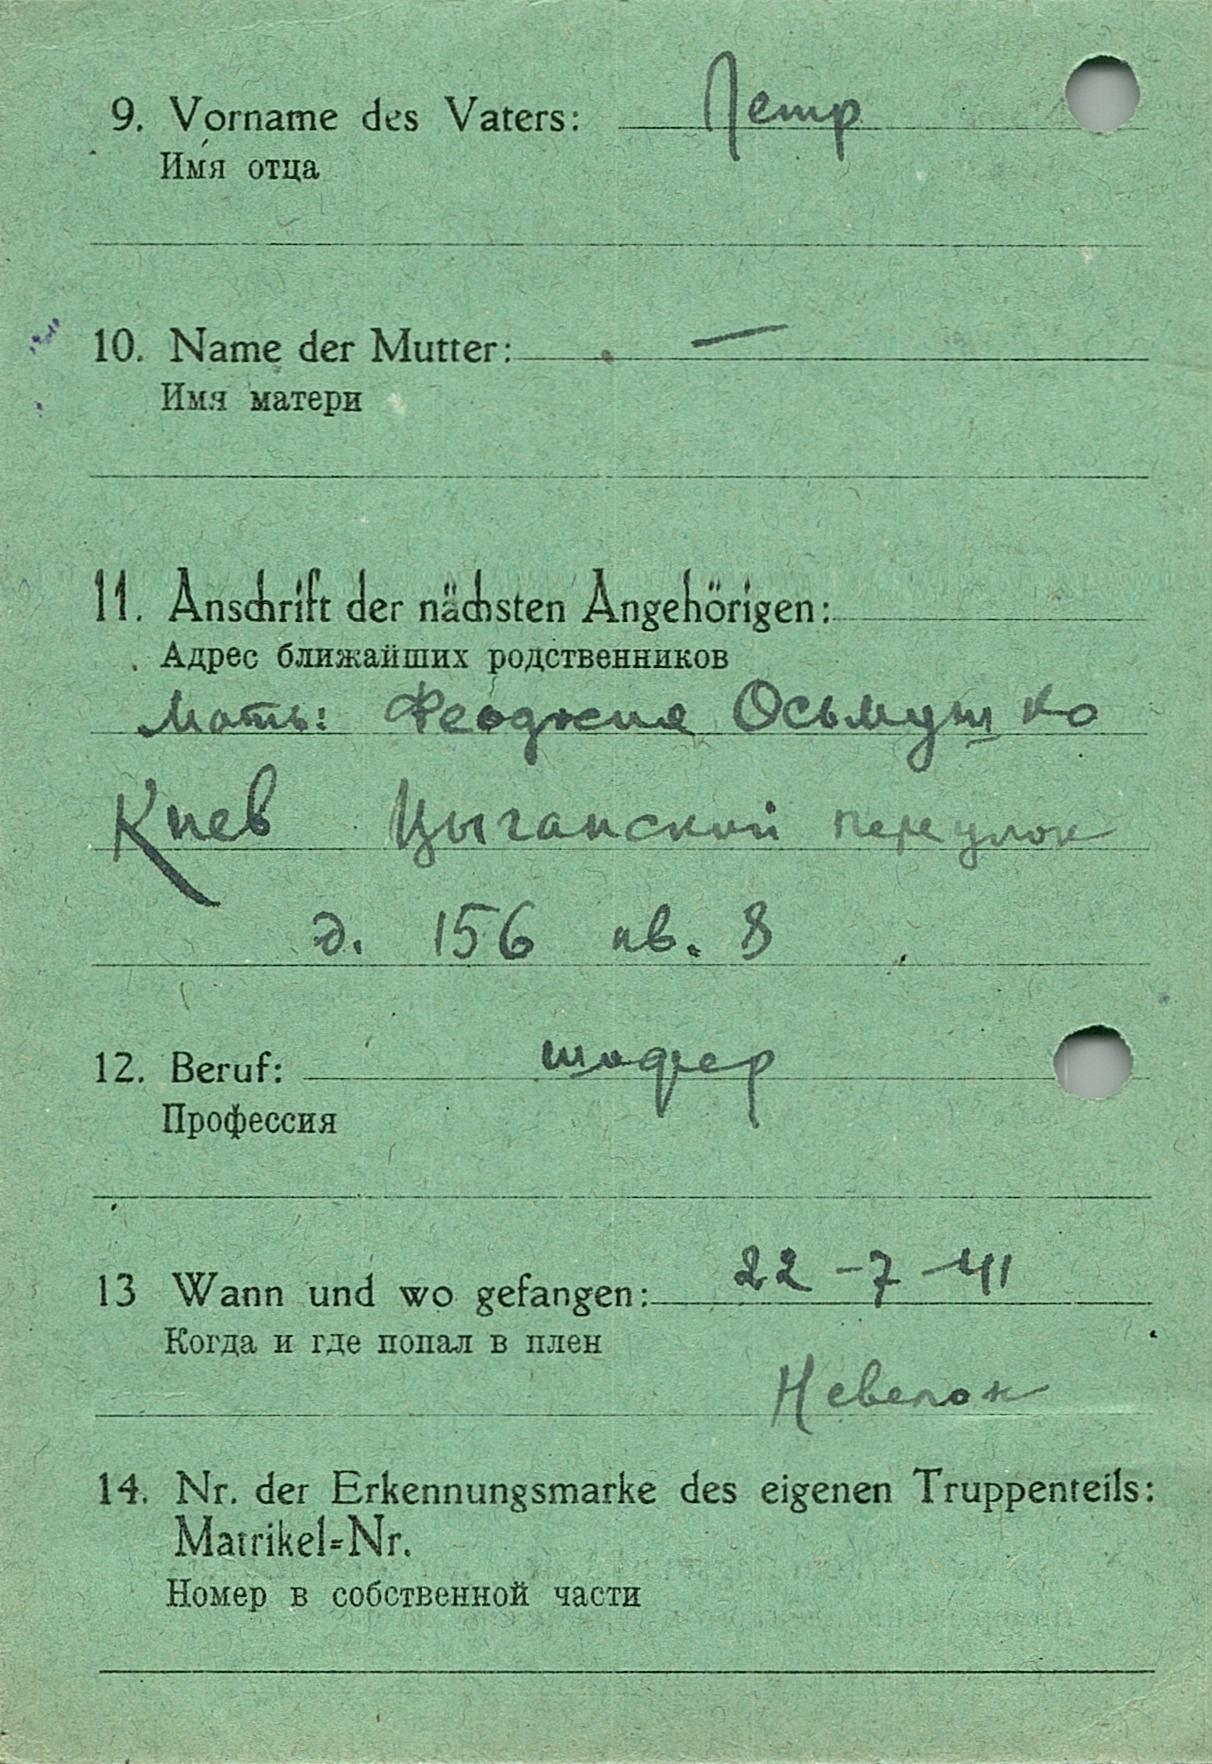 9. Vorname des Vaters: Петр
Имя отца
10. Name der Mutter: —
Имя матери
11. Anschrift der nächsten Angehörigen:
Адрес ближайших родственников
Мать: Феодосия Осьмушко
Киев Цыганский переулок
д. 156 кв. 8
12. Beruf: шофер
Профессия
13 Wann und wo gefangen: 22-7-41
Когда и где попал в плен
14. Nr. der Erkennungsmarke des eigenen Truppenteils:
Matrikel=Nr.
Номер в собственной части